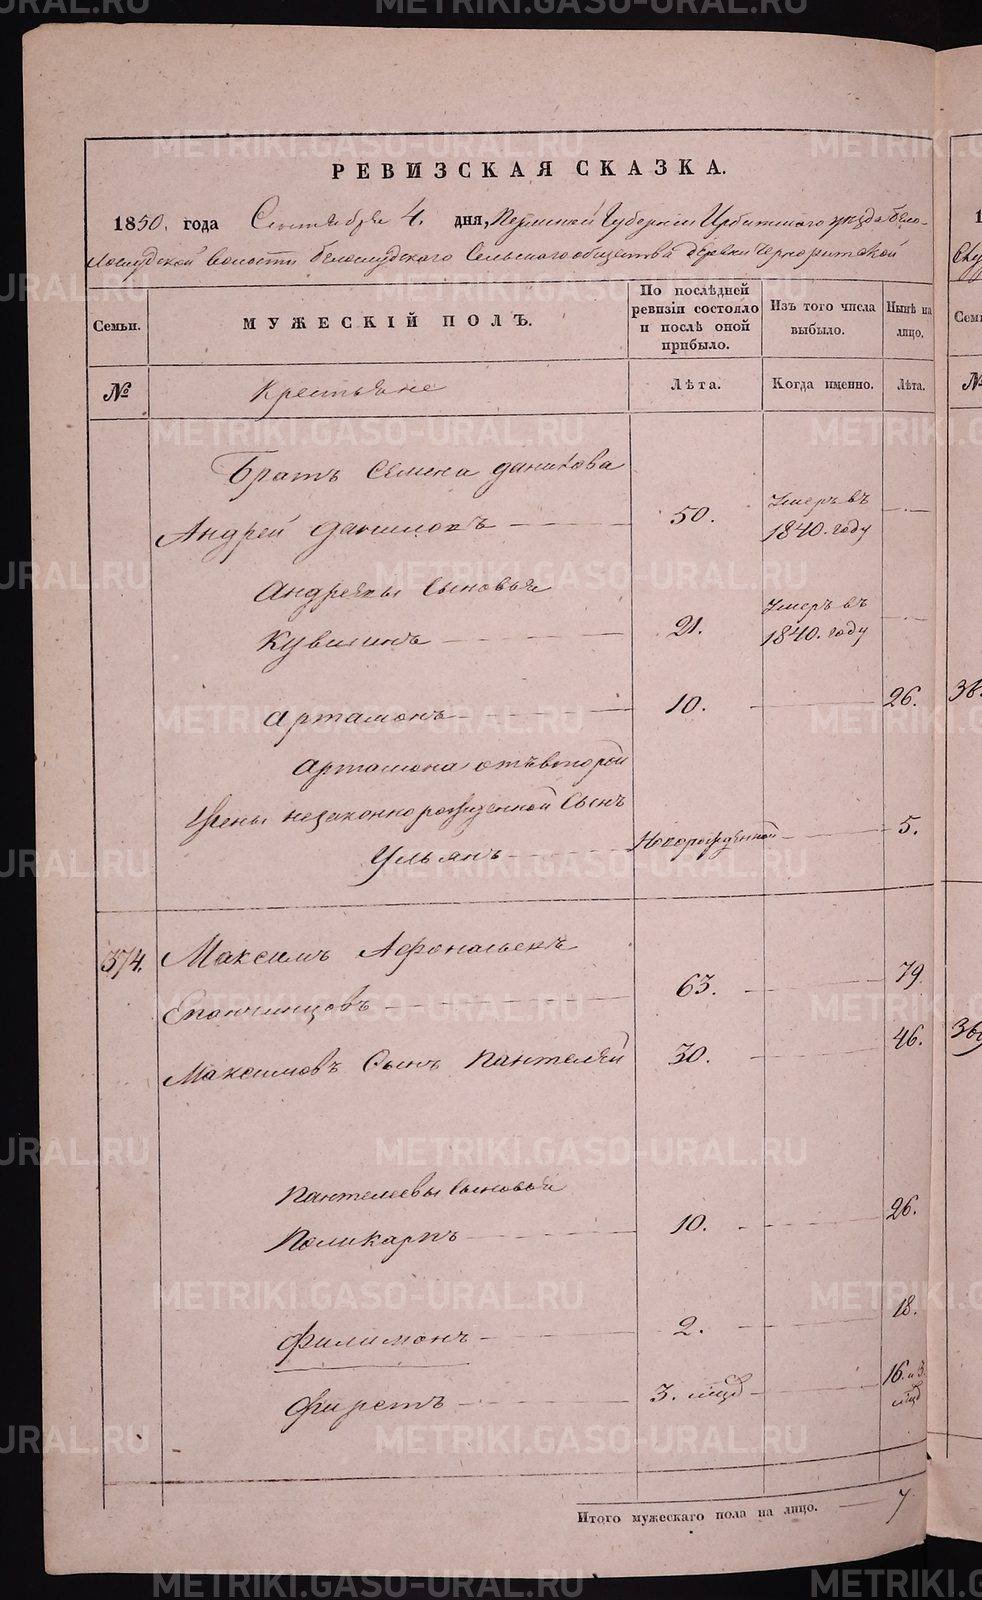 РЕВИЗСКАЯ СКАЗКА.
1850. года Сентября 4. дня, Пермской Губернии Ирбитского уезда Бело-
слудской волости белослудского Сельского общества деревни
Семьи.
МУЖЕСКІЙ ПОЛЪ.
По послѣдней ревизіи состояло и послѣ оной прибыло.
Изъ того числа выбыло.
Нынѣ на лицо.
№
Крестьяне
Лѣта.
Когда именно.
Лѣта.
Братъ Семена данилова
Андрей даниловъ 50. Умеръ въ 1840. году
Андреевы Сыновья
21. Умеръ въ 1840. году
Артамонъ 10. 26.
Артамона отъ второй
жены незаконнорожденной Сынъ
Ульянъ Новорожденной 5.
374. Максимъ Афонасьевъ
Епанчинцовъ 63. 79.
Максимовъ Сынъ Пантелей 30. 46.
Пантелеевы Сыновья
Поликарпъ 10. 26.
Филимонъ 2. 18.
Фирстъ 3. мцъ 16. и 3. мцъ
Итого мужескаго пола на лицо. 7
METRIKI.GASO-URAL.RU